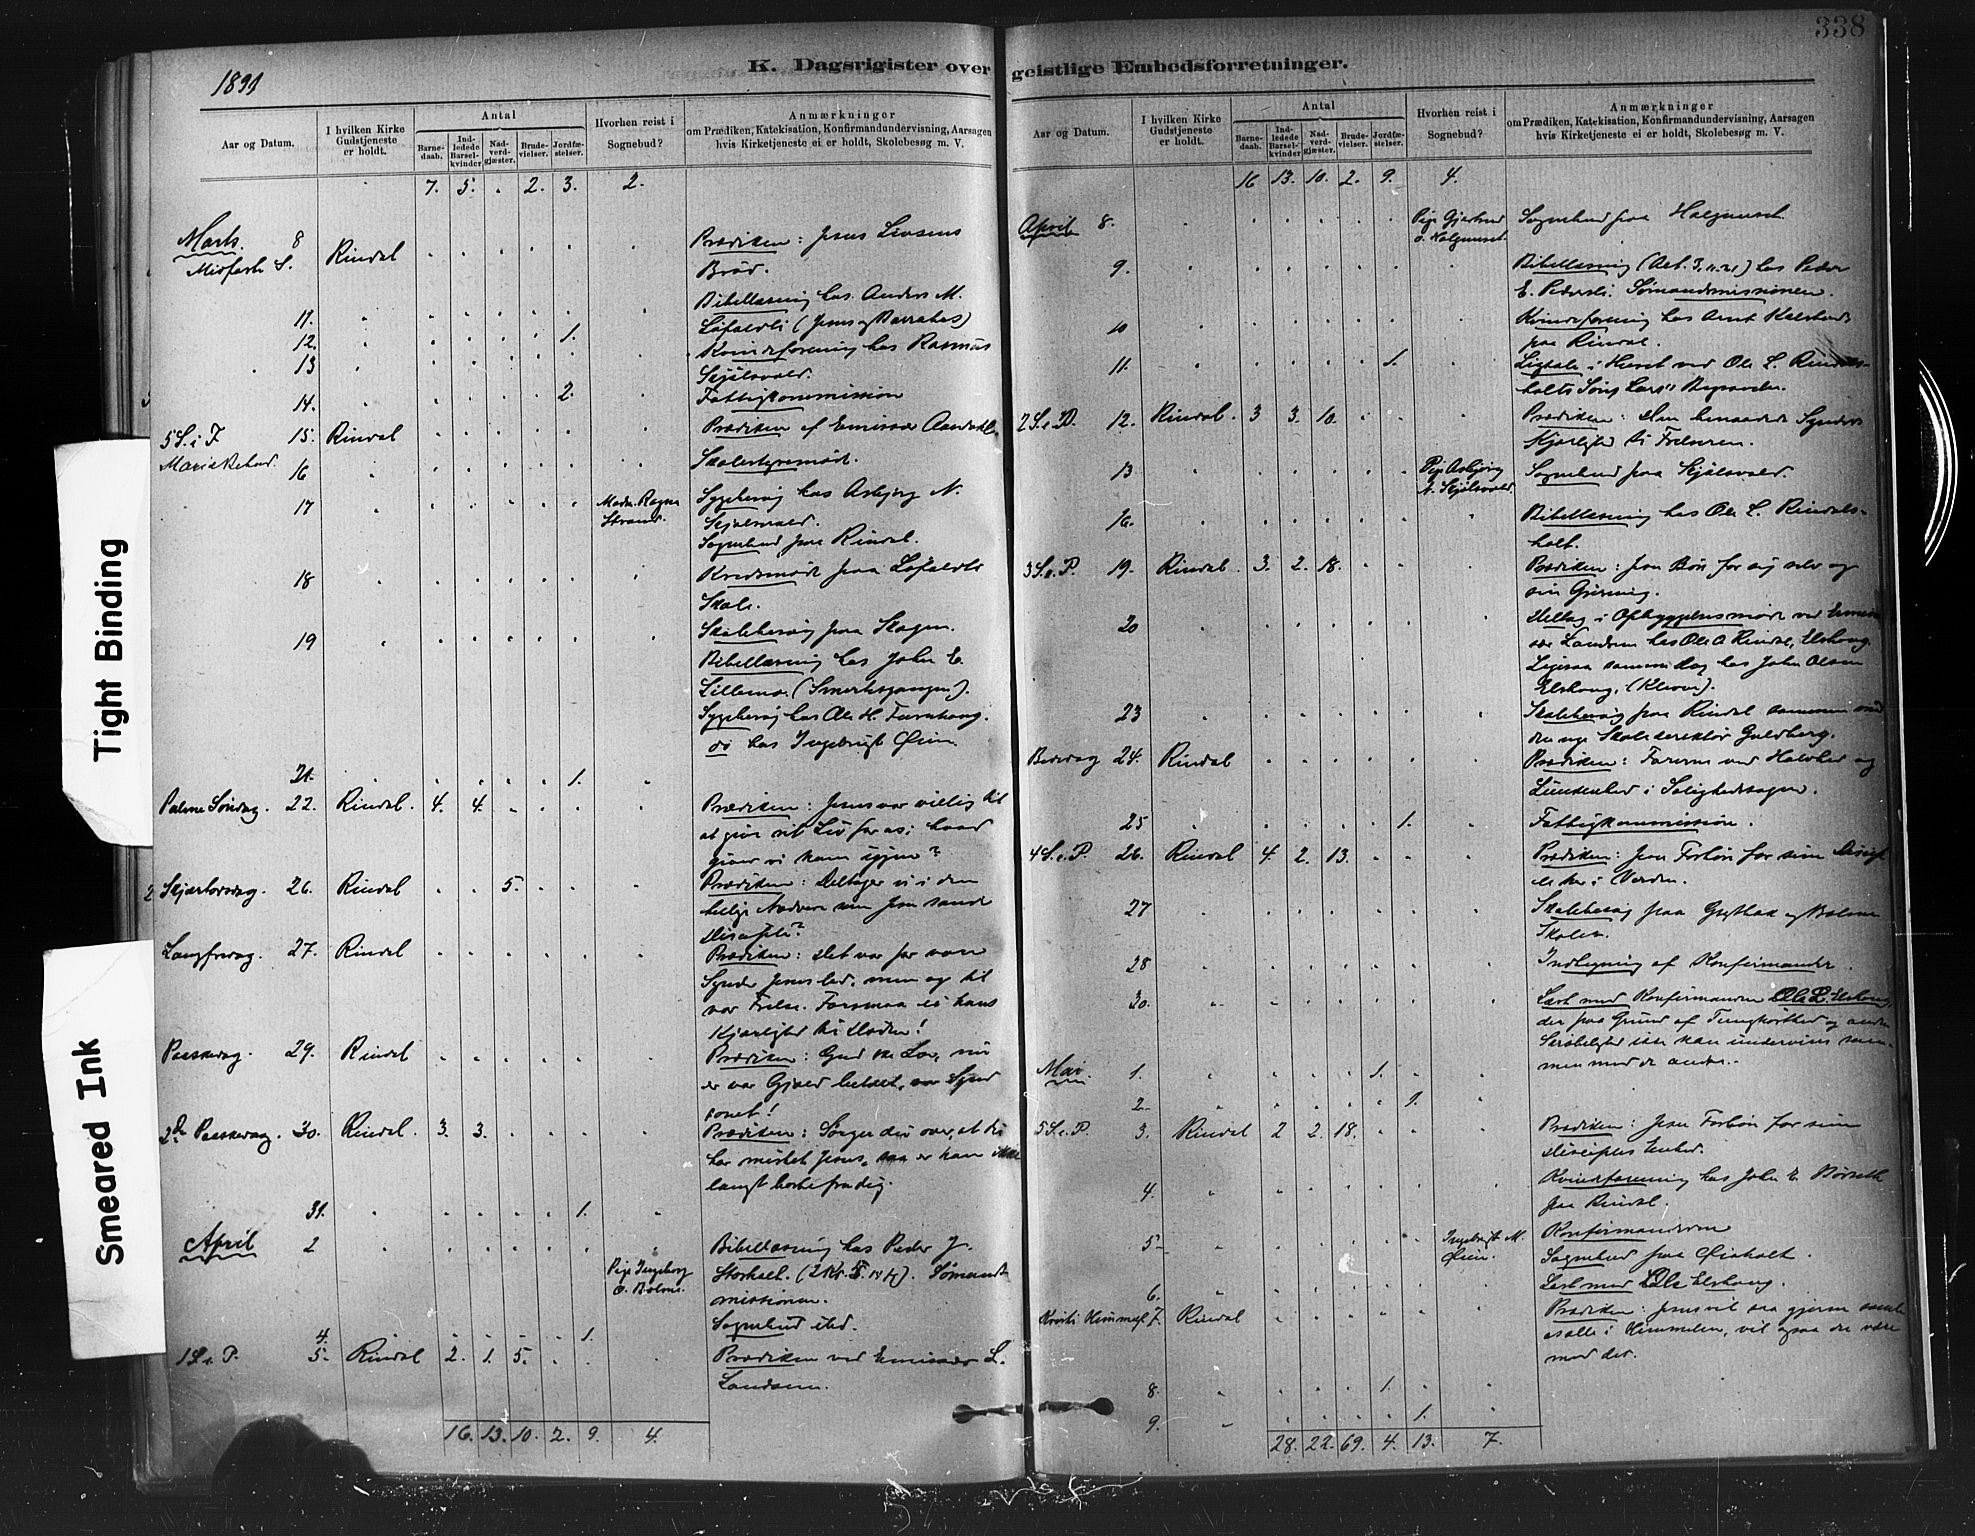 338
1891
K. Dagsrigister over geistlige Embedsforretninger.
Aar og Datum.
I hvilken Kirke Gudstjeneste er holdt.
Antal
Barne-daab.
Ind-ledede Barsel-kvinder
Nad-verd-gjæster.
Brude-vielser.
Jordfæ-stelser.
Hvorhen reist i Sognebud?
Anmærkninger
om Prædiken, Katekisation, Konfirmandundervisning, Aarsagen
hvis Kirketjeneste ei er holdt, Skolebesøg m. V.
7. 5. . 2. 3. 2.
Marts. 8 Rindal Prædiken: Jesus Livsens
Midfaste S. Brød.
11. Bibellæsning hos Anders M.
Løfaldli (Jesus og Barrabas)
12. 1. Kvindeforening hos Rasmus
13 Skjølsvold.
14. 2. Fattigkommission
5 S. i F. 15. Rindal Prædiken af Emissær
Mariæ Bebud. 16 Skolestyremøde.
17 Ragna Strand. Sygebesøg hos Asbjørg N.
Skjølsvold.
Sognebud paa Rindal.
18 Kredsmøde paa Løfaldli
Skole.
19 Skolebesøg paa Skogen.
Bibellæsning hos John E.
Lillemo (Smertesgangen).
Sygebesøg hos Ole H.
og hos Ingebrigt Øien
21. 1.
Palme Søndag. 22. Rindal. 4. 4. Prædiken: Jesus var villig til
at give sit Liv for os; hvad
giver vi ham igjen?
Skjærtorsdag. 26. Rindal 5. Prædiken: Deltager vi i den
hellige Nadvere som Jesu sande
Disciple?
Langfredag. 27. Rindal Prædiken: Det var for vore
Synder Jesus led, men og til
vor Frelse. Forsmaa ei hans
Kjærlighed til Døden!
Paaskedag. 29. Rindal Prædiken: Gud ske Lov, nu
er vor Gjæld betalt, vor Synd
sonet!
2d Paaskedag. 30. Rindal. 3. 3. Prædiken: Sørger du over, at du
har mistet Jesus, saa er han ikke
langt borte fra dig.
31. 1.
April 2 Pige Ingeborg O. Bolme. Bibellæsning hos Peder J.
Storholt. Sømands-
missionen.
Sognebud sted.
4. 1.
1 S. e. P. 5. Rindal 2. 1. 5. Prædiken ved Emissær L.
Landsem.
16. 13. 10. 2. 9. 4.
Aar og Datum.
I hvilken Kirke Gudstjeneste er holdt.
Antal
Barne-daab.
Ind-ledede Barsel-kvinder
Nad-verd-gjæster.
Brude-vielser.
Jordfæ-stelser.
Hvorhen reist i Sognebud?
Anmærkninger
om Prædiken, Katekisation, Konfirmandundervisning, Aarsagen
hvis Kirketjeneste ei er holdt, Skolebesøg m. V.
16 13. 10. 2. 9. 4.
April 8. Pige Gjertrud O. Halgunset. Sognebud paa Halgunset.
9. Bibellæsning hos Peder
E. Pedersli. Sømandsmissionen.
10 Kvindeforening hos Arnt
paa Rindal.
11. 1. Ligtale i Huset ved Ole L. Rindals-
holts Søns Lars's Begravelse.
2 S. e. P. 12. Rindal. 3 3. 10. Prædiken: Den benaadede Synders
Kjærlighed til Frelseren.
13 Pige Asbjørg N. Skjølsvold. Sognebud paa Skjølsvold.
16. Bibellæsning hos Ole L. Rindals-
holt.
3 S. e. P. 19. Rindal. 3. 2. 18. Prædiken: Jesu Bøn for sig selv og
sin Gjerning.
20 Deltog i Opbyggelsesmøde ved Emis-
sær Landsem hos Ole O. Rindal, Elshaug.
Ligesaa samme dag hos John Olsen
Elshaug, (Kleven).
23 Skolebesøg paa Rindal sammen med
den nye Skoledirektør Guldberg.
Bededag 24. Rindal Prædiken: Farerne ved Halvhed og
Lunkenhed i Salighedssagen.
25 1. Fattigkommission.
4 S. e. P. 26. Rindal 4. 2. 13. Prædiken: Jesu Forbøn for sine Discip-
le her i Verden.
27 Skolebesøg paa og Bolme
Skoler.
28 Indlegning af Konfirmander.
30. Læst med Konfirmanden Ole L. Elshaug,
der paa Grund af Tunghørthed og anden
Skrøbelighed ikke kan undervises sam-
men med de andre.
Mai 1. 1.
2. 1.
5 S. e. P. 3. Rindal 2 2. 18. Prædiken: Jesu Forbøn for sine
Disciples Enhed.
4. Kvindeforening hos John E. Børseth
paa Rindal.
5 Ingebrigt M. Øien. Konfirmanderne
Sognebud paa
6. Læst med Ole Elshaug.
Kristi Himmelf. 7. Rindal Prædiken: Jesus vil saa gjerne samle
os alle i Himmelen, vil ogsaa du være
med der.
8. 1.
9. 1.
28. 22. 69. 4. 13. 7.
Tight Binding
Smeared Ink